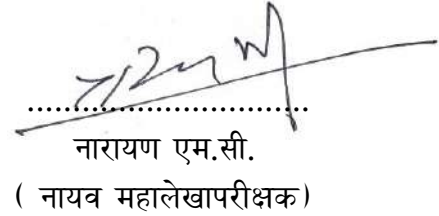 ..............................
नारायण एम.सी.
( नायव महालेखापरीक्षक)